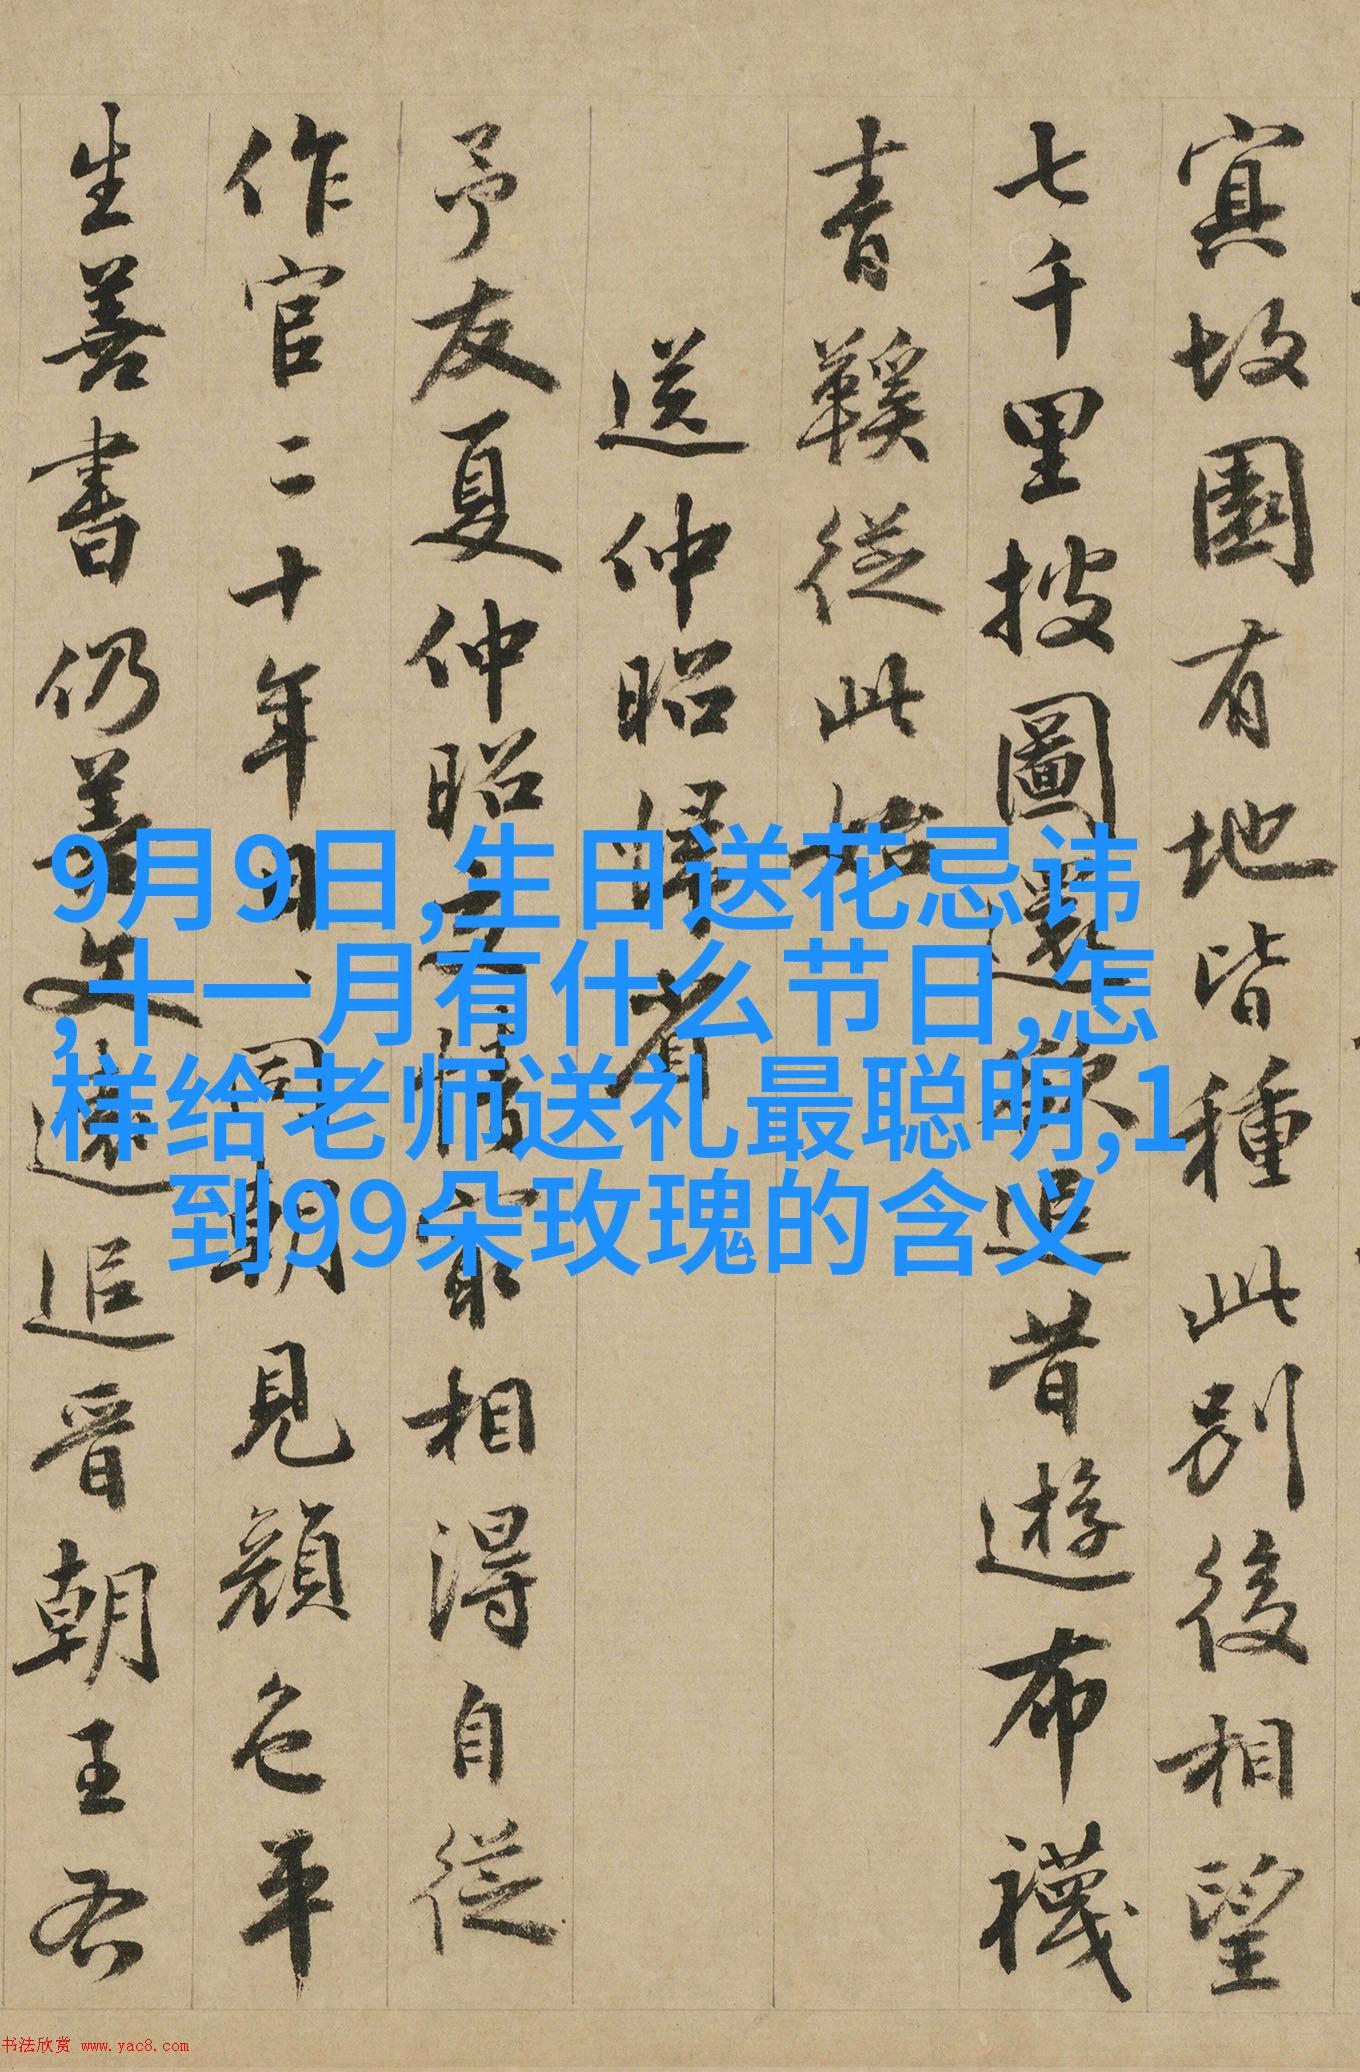 寘故園有地皆種此別後相望
七千里披圖還欲追昔遊布襪
青鞵從此始
送仲昭歸省
予友夏仲昭交情最相得自從
作官二十年日日同朝見顏色平
生善書仍善文遠追晉朝王右
9月9日,生日送花忌讳
,十一月有什么节日,怎
样给老师送礼最聪明,1
到99朵玫瑰的含义
书法欣赏 www.yac8.com